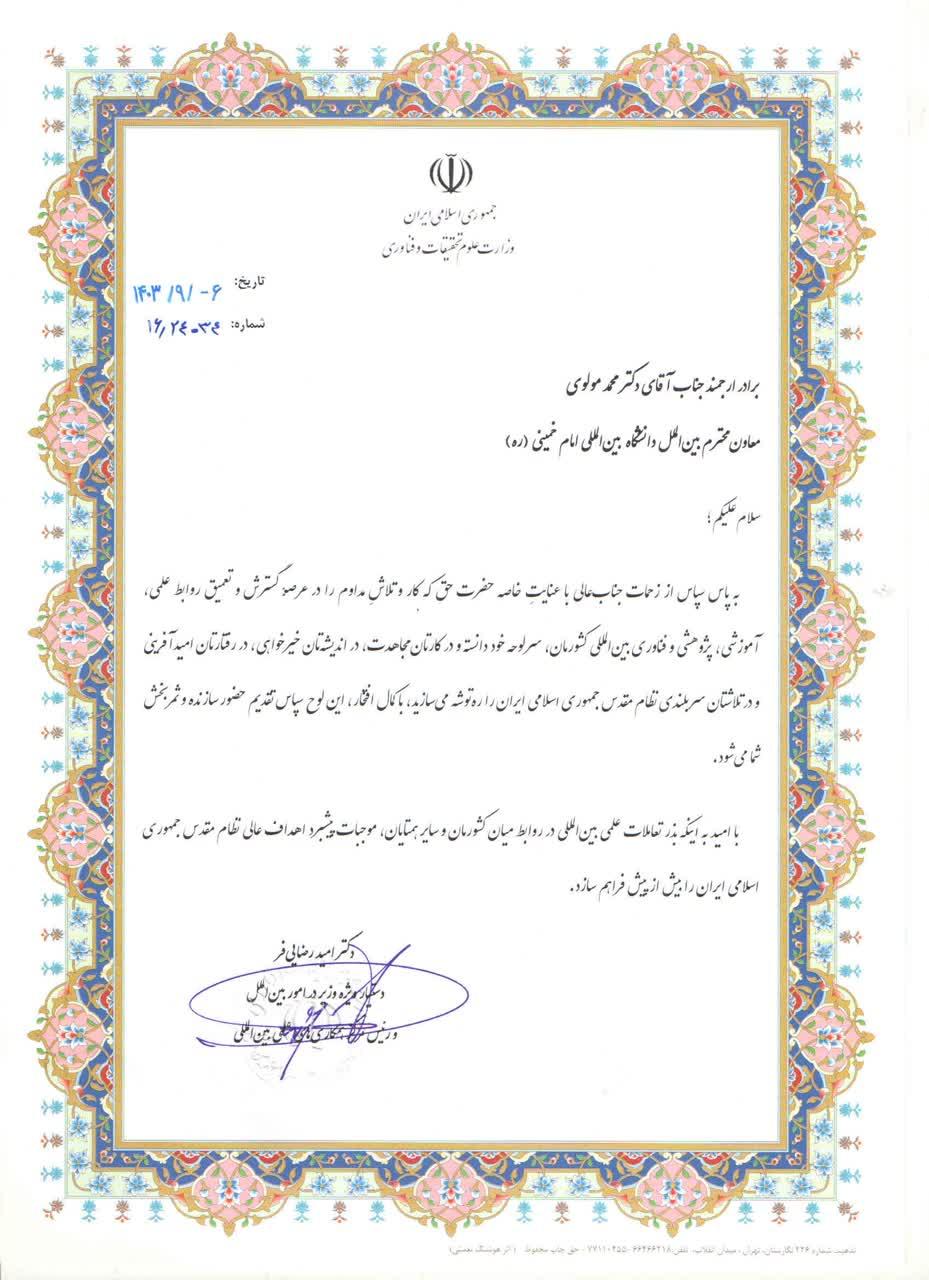 جمهوری اسلامی ایران
وزارت علوم تحقیقات و فناوری
تاریخ: ۱۴۰۳/۹/۰۶
شماره: ۱۶/۲۴۰۳۴
برادر ارجمند جناب آقای دکتر محمد مولوی
معاون محترم بین‌الملل دانشگاه بین‌المللی امام خمینی (ره)
سلام علیکم؛
به پاس سپاس از زحمات جناب‌عالی با عنایتِ خاصه حضرت حق که کار و تلاشِ مداوم را در عرصۀ گسترش و تعمیق روابط علمی،
آموزشی، پژوهشی و فناوری بین‌المللی کشورمان، سرلوحه خود دانسته و در کارتان مجاهدت، در اندیشه‌تان خیرخواهی، در رفتارتان امیدآفرینی
و در تلاشتان سربلندی نظام مقدس جمهوری اسلامی ایران را ره‌توشه می‌سازید، با کمال افتخار، این لوح سپاس تقدیم حضور سازنده و ثمربخش
شما می‌شود.
با امید به اینکه بذر تعاملات علمی بین‌المللی در روابط میان کشورمان و سایر همتایان، موجبات پیشبرد اهداف عالی نظام مقدس جمهوری
اسلامی ایران را بیش از پیش فراهم سازد.
دکتر امید رضایی‌فر
دستیار ویژه وزیر در امور بین‌الملل
و رئیس مرکز همکاری‌های علمی بین‌المللی
تذهیب شماره ۲۲۶ نگارستان، تهران، میدان انقلاب، تلفن: ۶۶۴۶۶۲۱۸-۷۷۱۱۰۲۵۵ - حق چاپ محفوظ (اثر هوشنگ نعمتی)